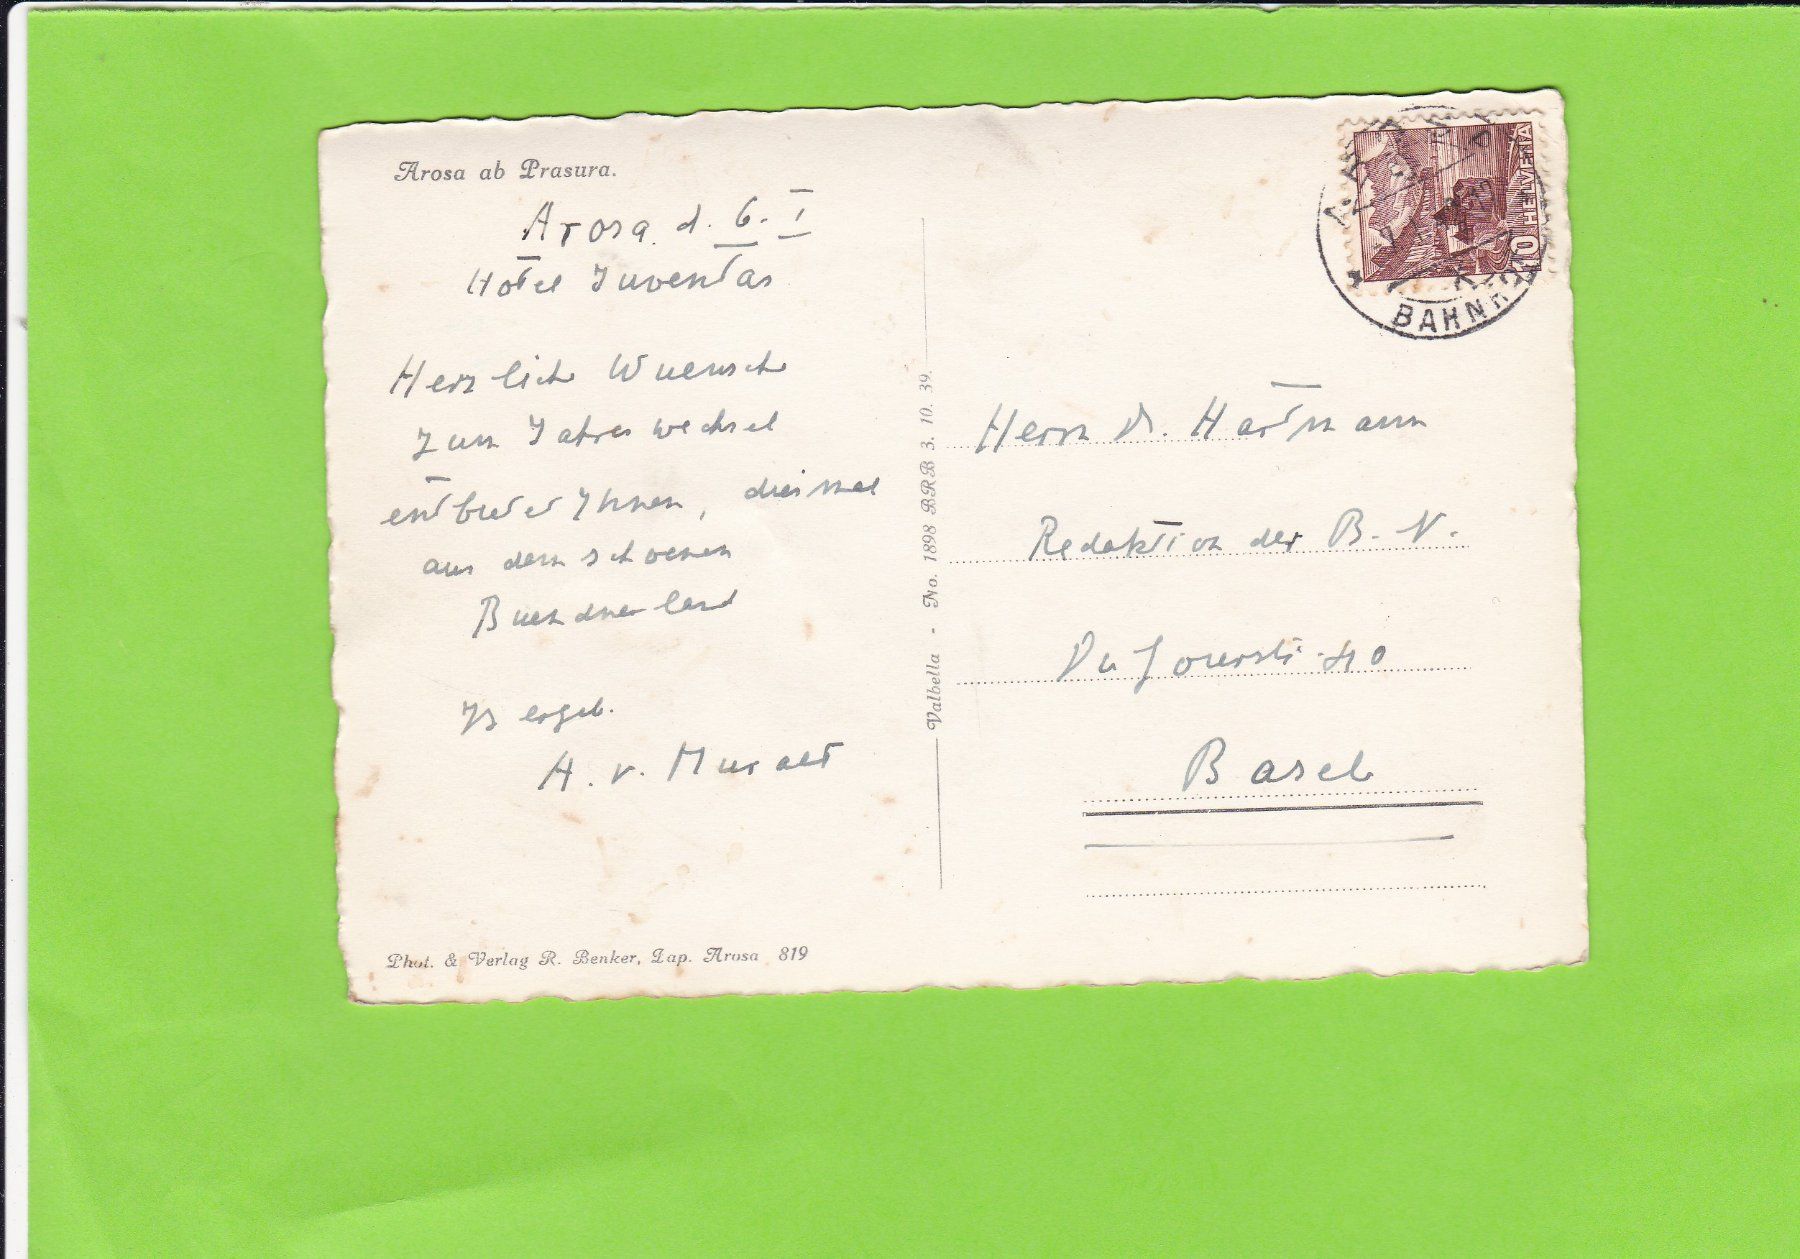 Arosa ab Prasura.
Arosa d. 6. I
Hotel Juventas
Herzlich Wuensch
zum Jahreswechsel
entbietet Ihnen, diesmal
aus dem schoenen
Buendnerland
Ihr ergeb.
H. v. Muralt
Phot. & Verlag R. Benker, Lap. Arosa 819
Valbella - No. 1898 BRB 3. 10. 39.
HELVETIA
10
BAHNHOF
Herrn Dr. Hartmann
Redaktion der B. N.
Dufourstr. 40
Basel